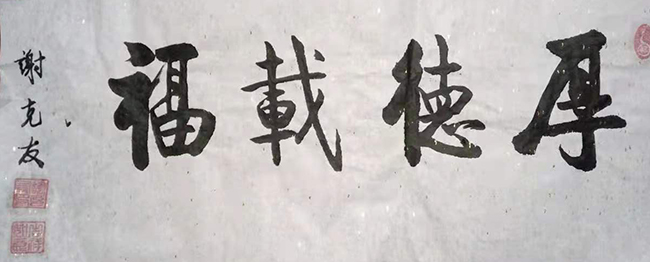 厚德載福
謝克友